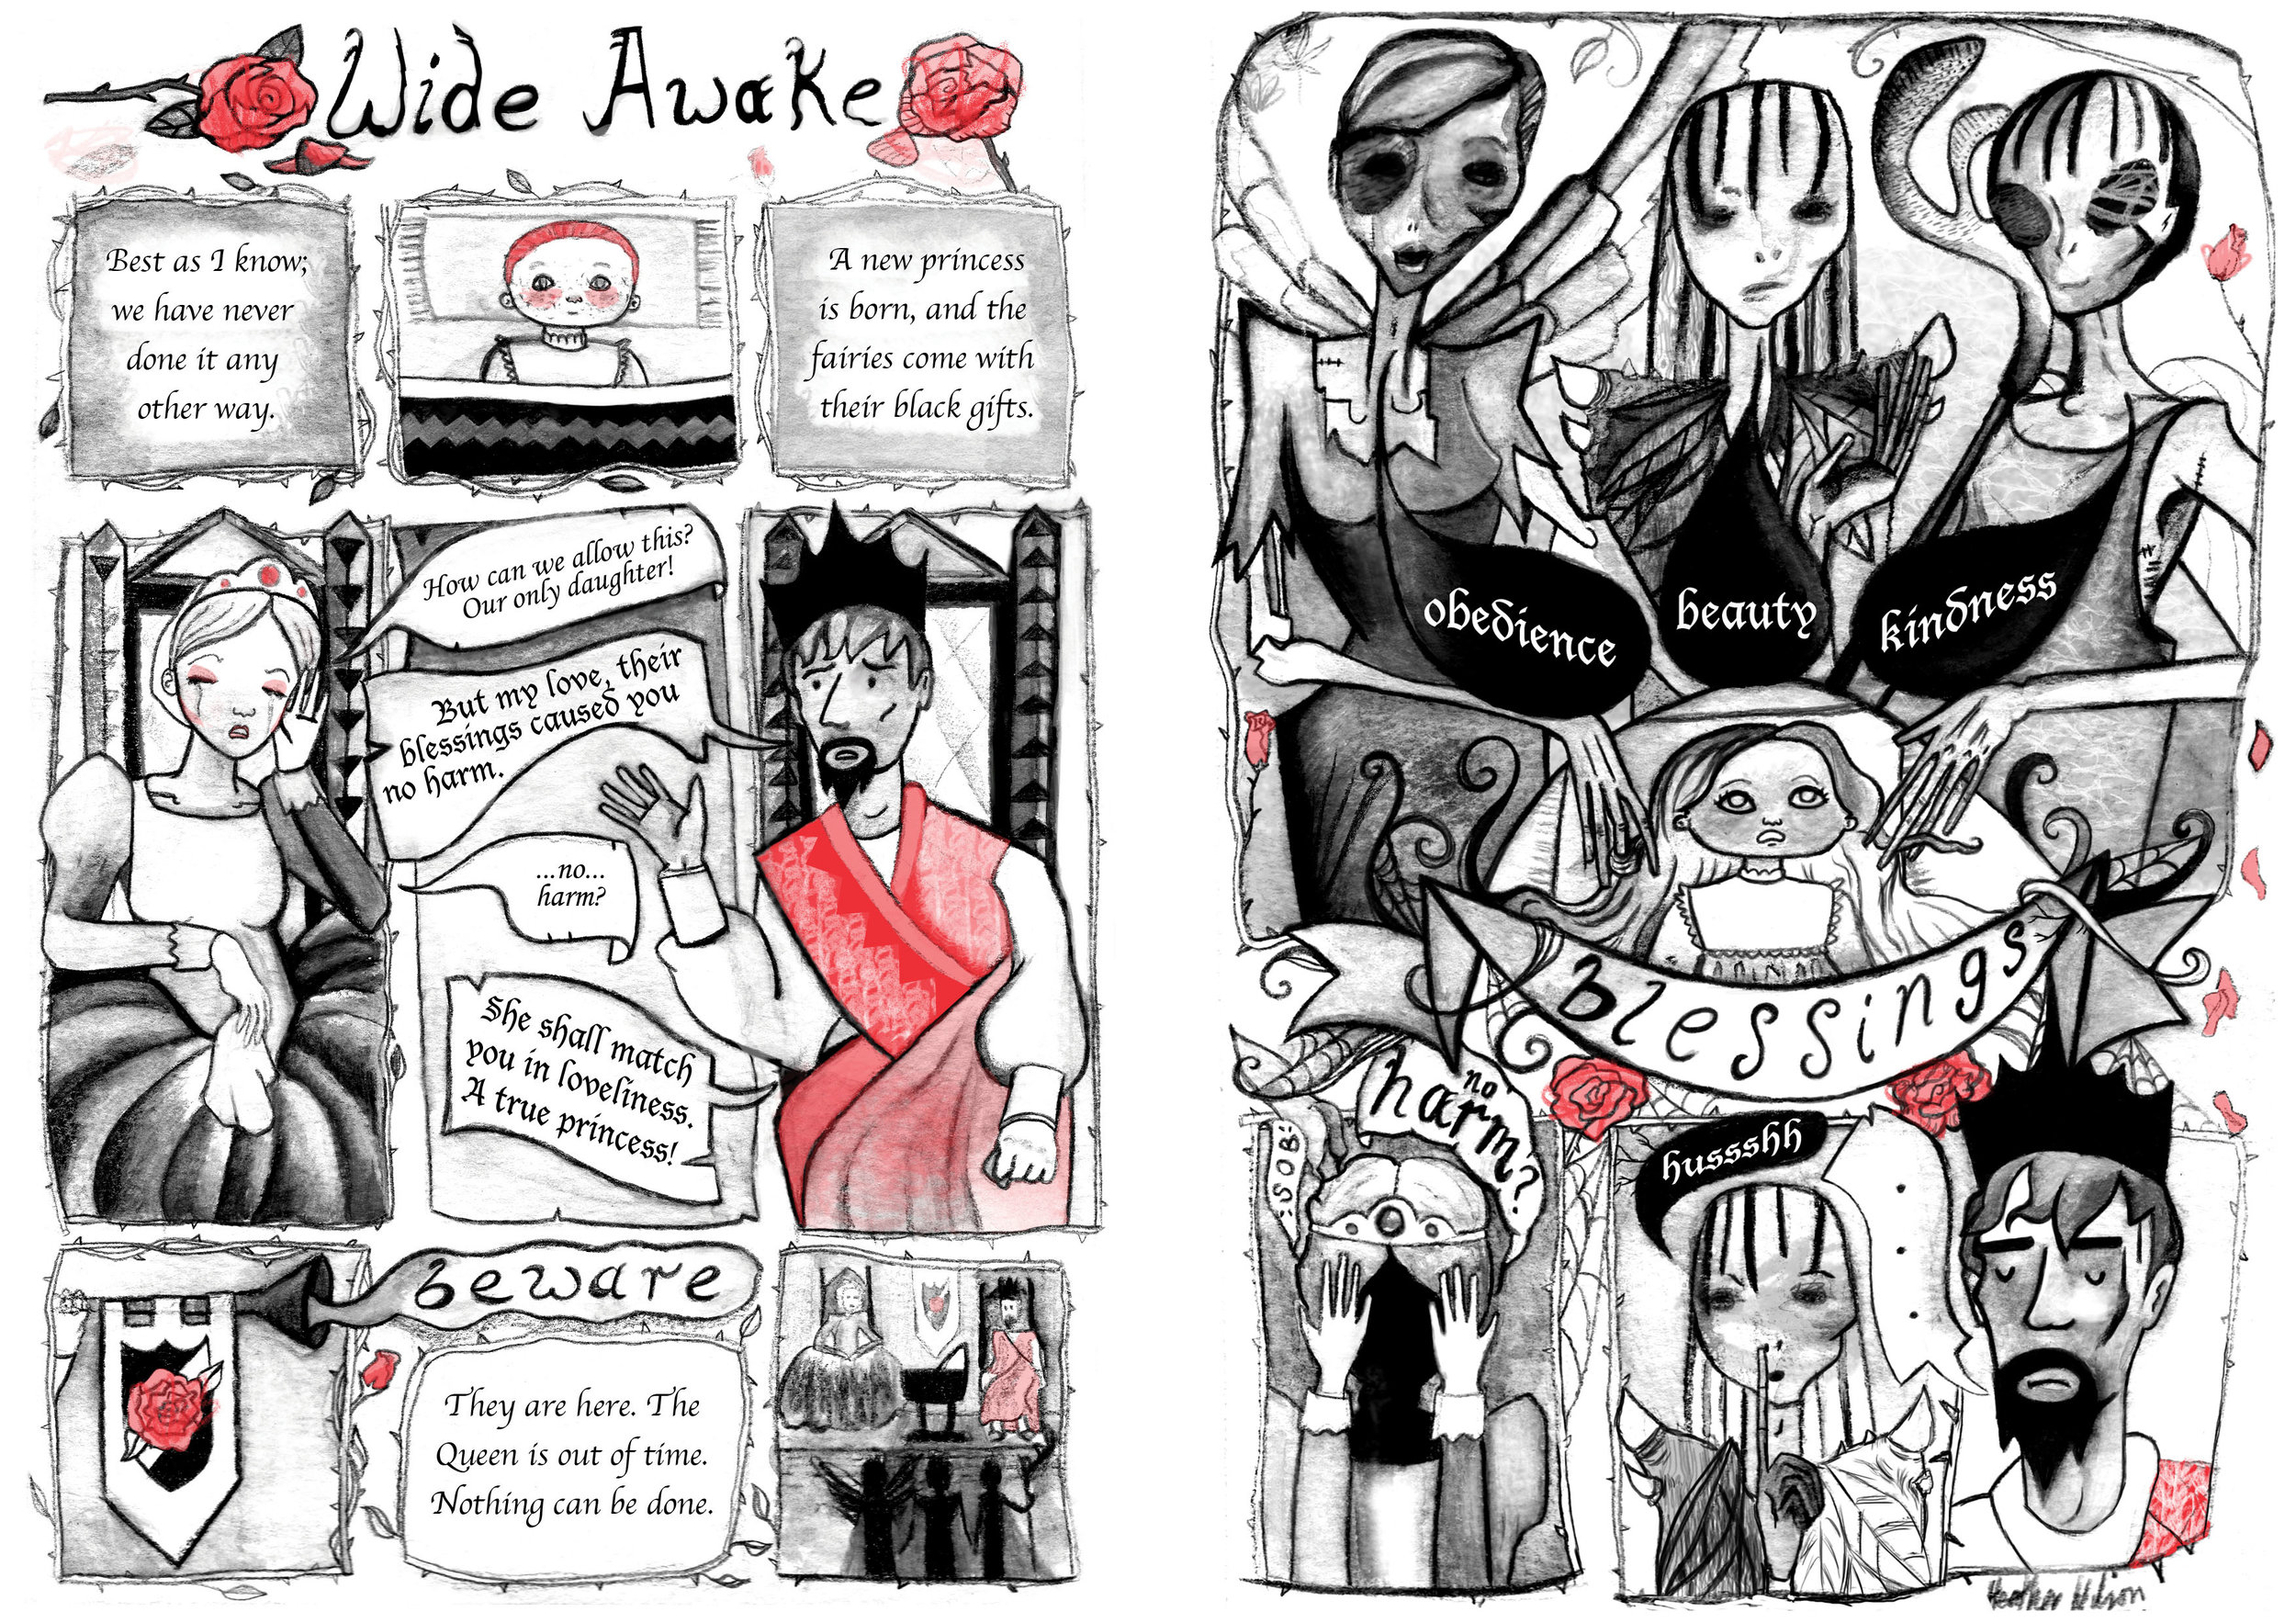 Wide Awake
Best as I know;
we have never
done it any
other way.
A new princess
is born, and the
fairies come with
their black gifts.
How can we allow this?
Our only daughter!
But my love, their
blessings caused you
no harm.
...no...
harm?
She shall match
you in loveliness.
A true princess!
beware
They are here. The
Queen is out of time.
Nothing can be done.
obedience
beauty
kindness
blessings
SOB!
no
harm?
hussshh
...
Heather Wilson